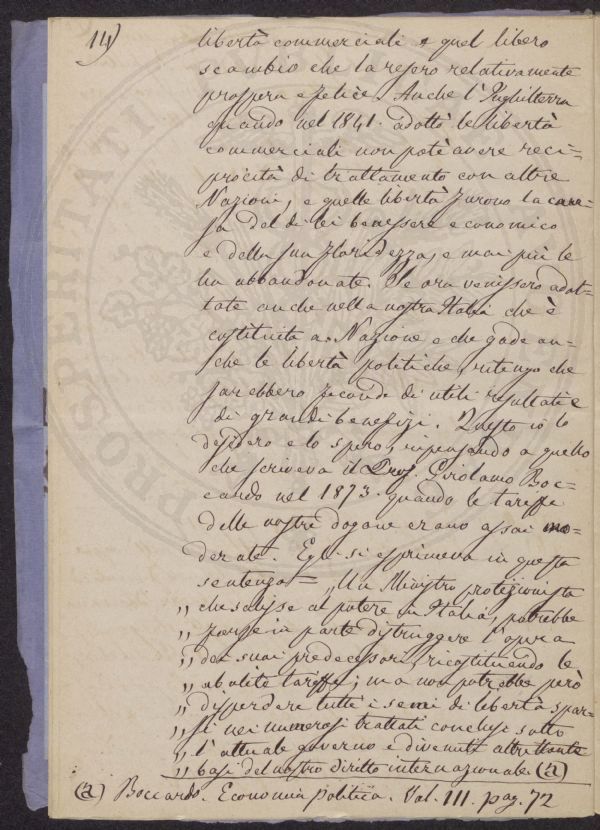 14)
libertà commerciali e quel libero
scambio che la resero relativamente
prospera e felice. Anche l'Inghilterra
quando nel 1841. adottò le libertà
commerciali non potè avere reci=
procità di trattamento con altre
Nazioni, e quelle libertà furono la cau=
sa del di lei benessere economico
e della sua floridezza, e mai più le
ha abbandonate. Se ora venissero adot=
tate anche nella nostra Italia che è
costituita a Nazione e che gode an=
che le libertà politiche, ritengo che
sarebbero feconde di utili resultati e
di grandi benefizi. Questo io lo
desidero e lo spero, ripensando a quello
che scriveva il Prof. Girolamo Boc=
cardo nel 1873. quando le tariffe
delle nostre dogane erano assai mo=
derate. Egli si esprimeva in questa
sentenza = „Un Ministro protezionista
„ che salisse al potere in Italia, potrebbe
„ forse in parte distruggere l'opera
„ dei suoi predecessori, ricostituendo le
„ abolite tariffe; ma non potrebbe però
„ disperdere tutti i semi di libertà spar=
„ si nei numerosi trattati conclusi sotto
„ l'attuale governo e divenuti altrettante
„ basi del nostro diritto internazionale. (a)
(a) Boccardo. Economia politica. Vol. III. pag. 72
PROSPERITATI